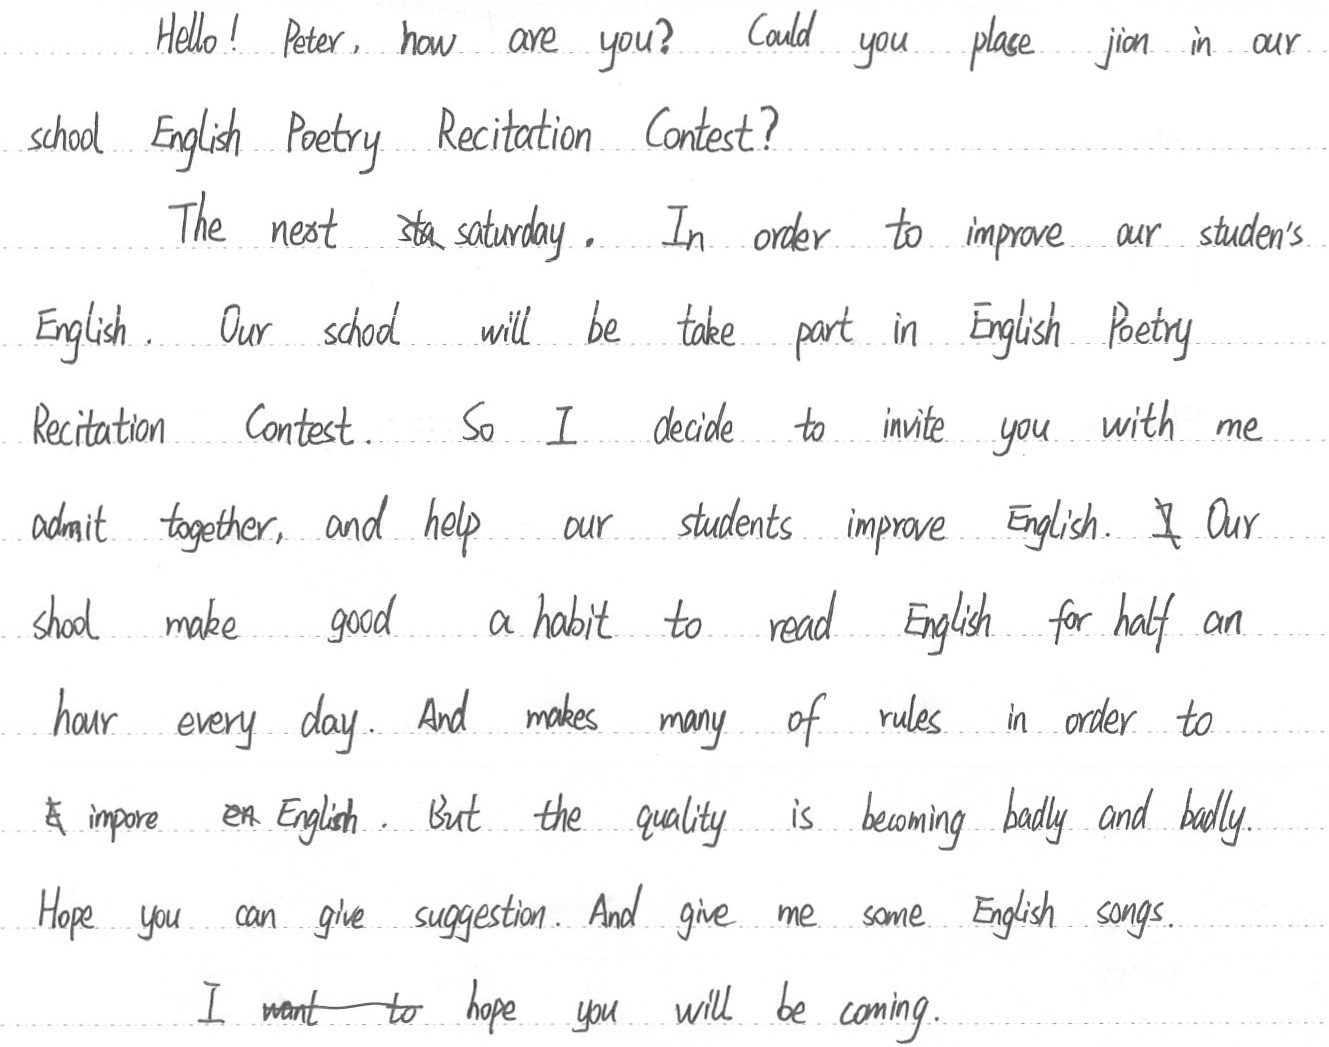 Hello! Peter, how are you? Could you plase jion in our
school English Poetry Recitation Contest?
The next saturday. In order to improve our studen's
English. Our school will be take part in English Poetry
Recitation Contest. So I decide to invite you with me
admit together, and help our students improve English. Our
shool make good a habit to read English for half an
hour every day. And makes many of rules in order to
impore English. But the quality is becoming badly and badly.
Hope you can give suggestion. And give me some English songs.
I hope you will be coming.